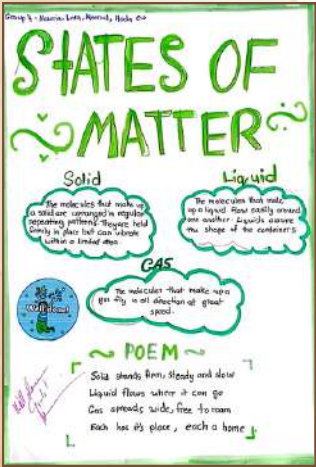 Group 4 -
STATES OF
MATTER
Solid
The molecules that make up
a solid are arranged in regular
repeating patterns. They are held
firmly in place but can vibrate
within a limited area.
Liquid
The molecules that make
up a liquid flow easily around
one another. Liquids assume
the shape of the containers
GAS
The molecules that make up a
gas fly in all direction at great
speed.
Well done!
POEM
Solid stands firm, steady and slow
Liquid flows where it can go
Gas spreads wide, free to roam
Each has it's place, each a home